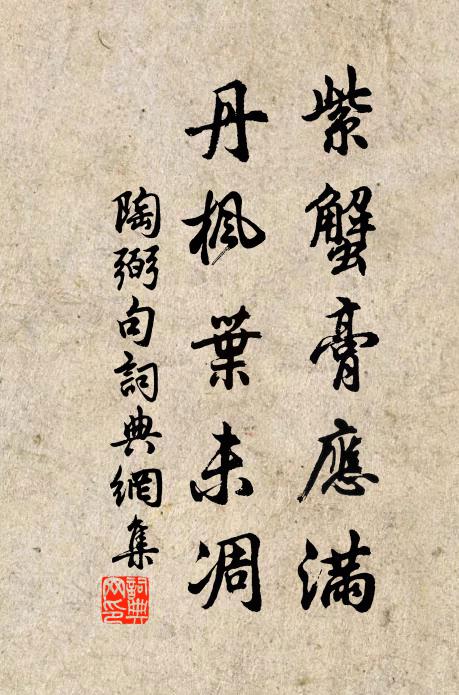 紫蟹膏應滿
丹楓葉未凋
陶弼句詞典網集
詞典
网印